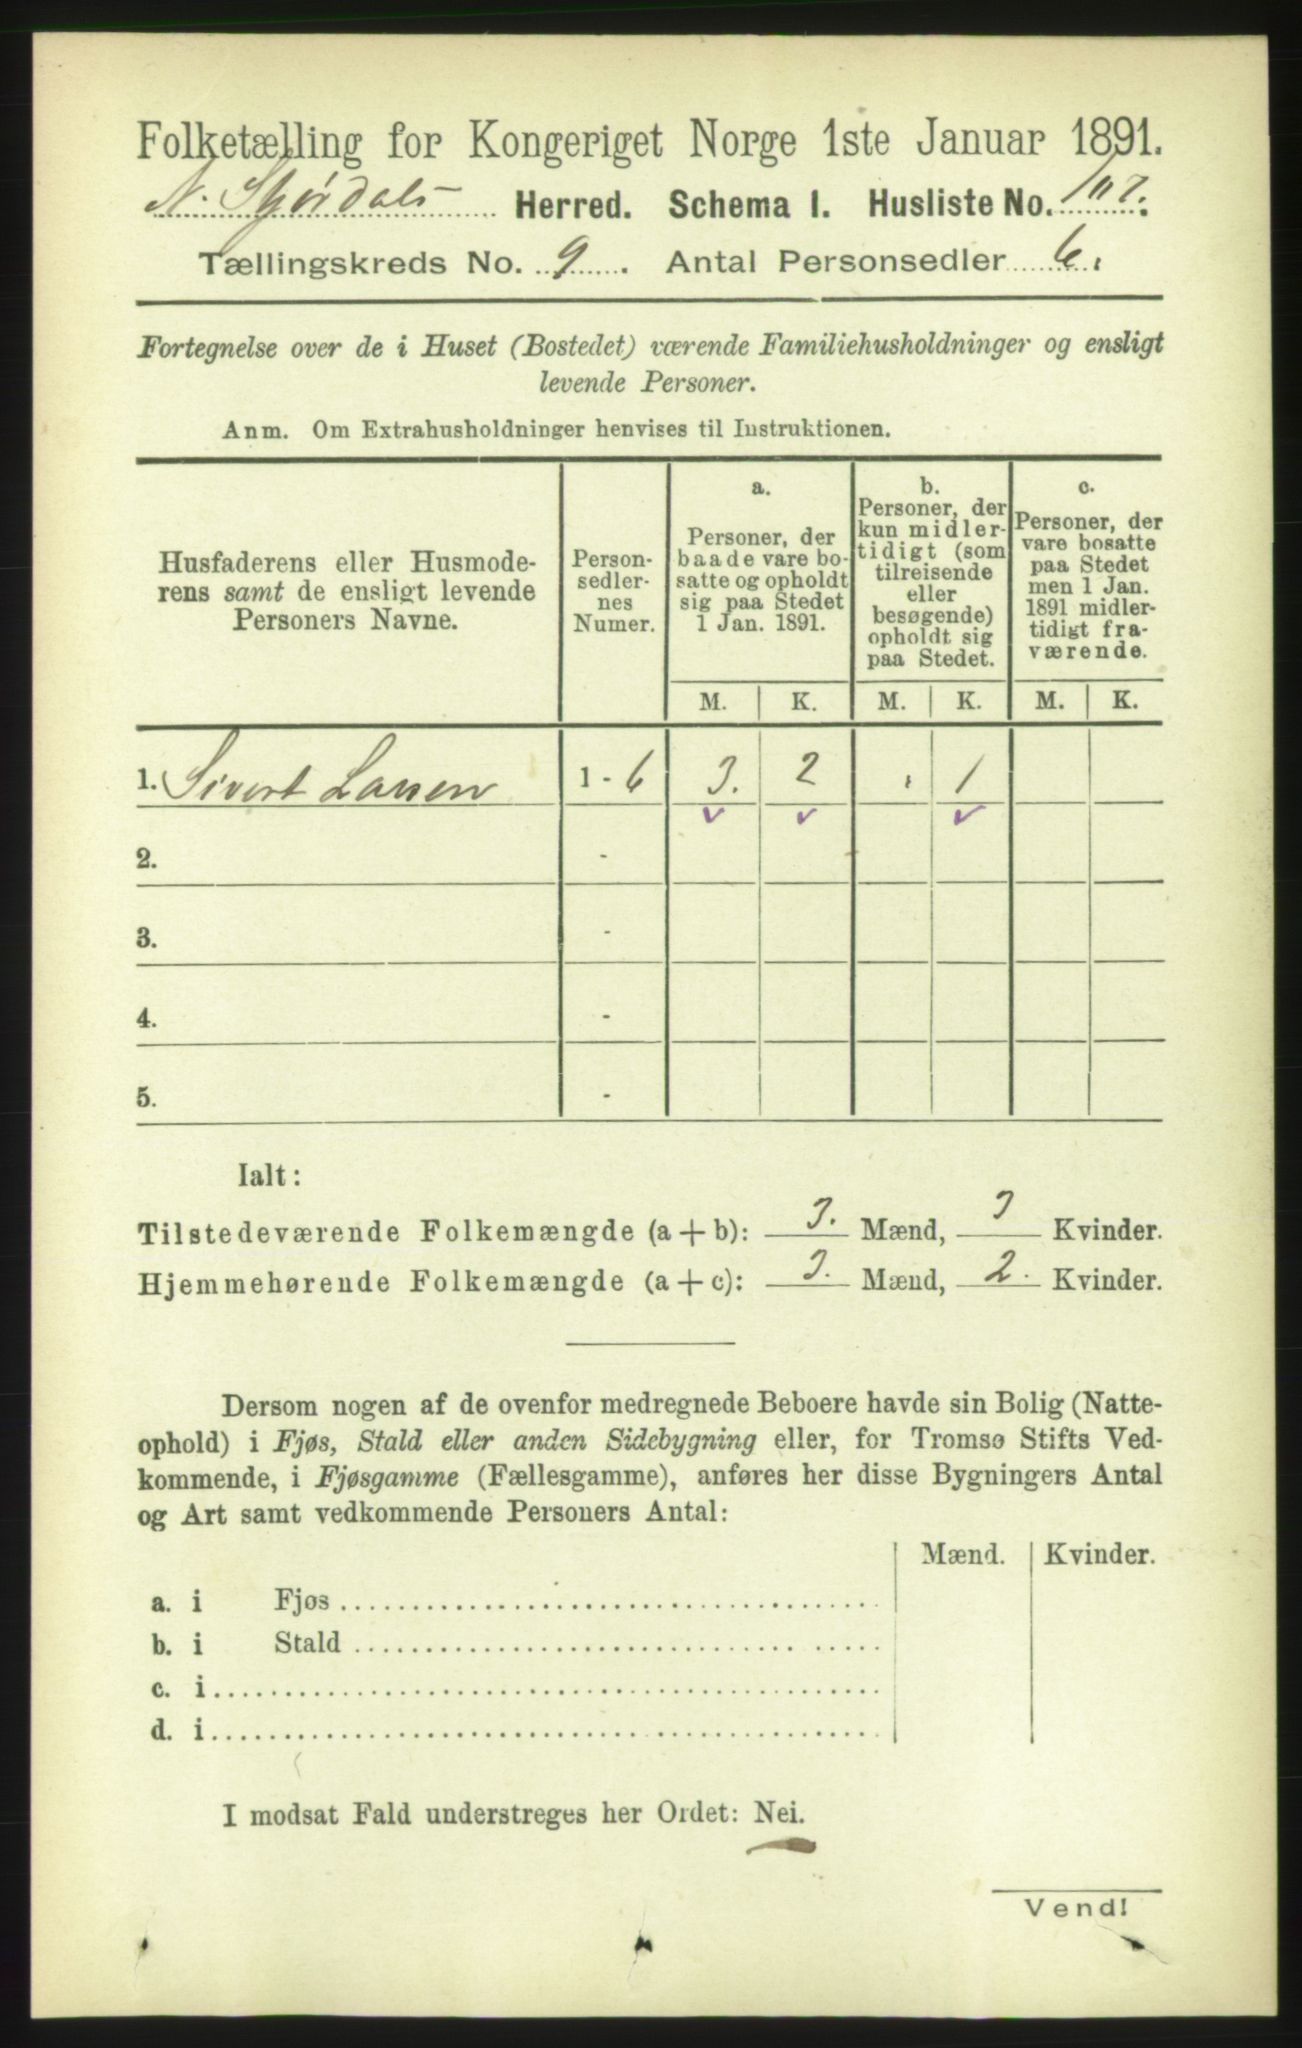 Folketælling for Kongeriget Norge 1ste Januar 1891.
N. Stjørdals Herred. Schema I. Husliste No. 117.
Tællingskreds No. 9. Antal Personsedler 6.
Fortegnelse over de i Huset (Bostedet) værende Familiehusholdninger og ensligt
levende Personer.
Anm. Om Extrahusholdninger henvises til Instruktionen.
Husfaderens eller Husmode-
rens samt de ensligt levende
Personers Navne.
Person-
sedler-
nes
Numer.
a.
Personer, der
baade vare bo-
satte og opholdt
sig paa Stedet
1 Jan. 1891.
b.
Personer, der
kun midler-
tidigt (som
tilreisende
eller
besøgende)
opholdt sig
paa Stedet.
c.
Personer, der
vare bosatte
paa Stedet
men 1 Jan.
1891 midler-
tidigt fra-
værende.
M. K. M. K. M. K.
1. Sivert Larsen 1 - 6 3. 2 . 1
2. -
3. -
4. -
5. -
Ialt:
Tilstedeværende Folkemængde (a + b): 3. Mænd, 3 Kvinder.
Hjemmehørende Folkemængde (a + c): 3. Mænd, 2. Kvinder.
Dersom nogen af de ovenfor medregnede Beboere havde sin Bolig (Natte-
ophold) i Fjøs, Stald eller anden Sidebygning eller, for Tromsø Stifts Ved-
kommende, i Fjøsgamme (Fællesgamme), anføres her disse Bygningers Antal
og Art samt vedkommende Personers Antal:
Mænd. Kvinder.
a. i Fjøs
b. i Stald
c. i
d. i
I modsat Fald understreges her Ordet: Nei.
Vend!